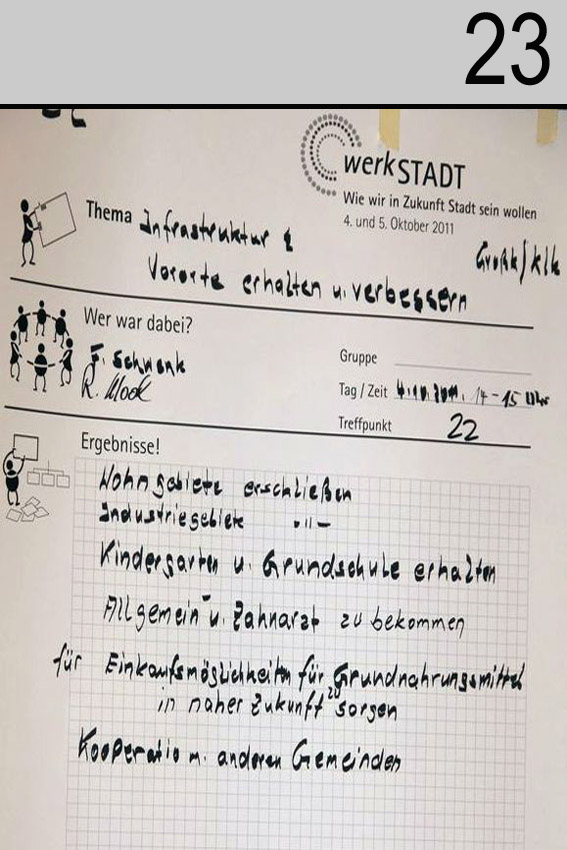 23
werkSTADT
Wie wir in Zukunft Stadt sein wollen
4. und 5. Oktober 2011
Thema Infrastruktur &
Vororte erhalten u. verbessern
Wer war dabei?
F. Schwenk
R. Mook
Gruppe
Tag / Zeit 4.10.2011. 14-15 Uhr
Treffpunkt 22
Ergebnisse!
Wohngebiete erschließen
Industriegebiete -"-
Kindergarten u. Grundschule erhalten
Allgemein- u. Zahnarzt zu bekommen
für Einkaufsmöglichkeiten für Grundnahrungsmittel
in naher Zukunft zu sorgen
Kooperatio m. anderen Gemeinden